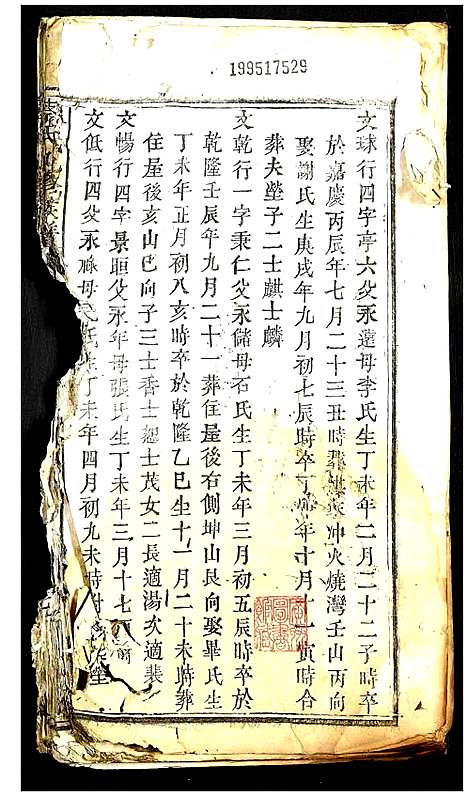 199517529
文球行四字亭六父永遠母李氏生丁未年二月二十二子時卒
於嘉慶丙辰年七月二十三丑時葬 冲火燒灣壬山丙向
娶謝氏生庚戌年九月初七辰時卒丁 年十月十一寅時合
葬夫塋子二士麒士麟
文乾行一字秉仁父永儲母石氏生丁未年三月初五辰時卒於
乾隆壬辰年九月二十一葬住屋後右側坤山艮向娶畢氏生
丁未年正月初八亥時卒於乾隆乙巳生十一月二十未時葬
住屋後亥山巳向子三士香士恕士茂女二長適湯次適裴
文暢行四字景垣父永年母張氏生丁未年三月十七 時
文低行四父永祿母 氏 生丁未年四月初九未時 塋